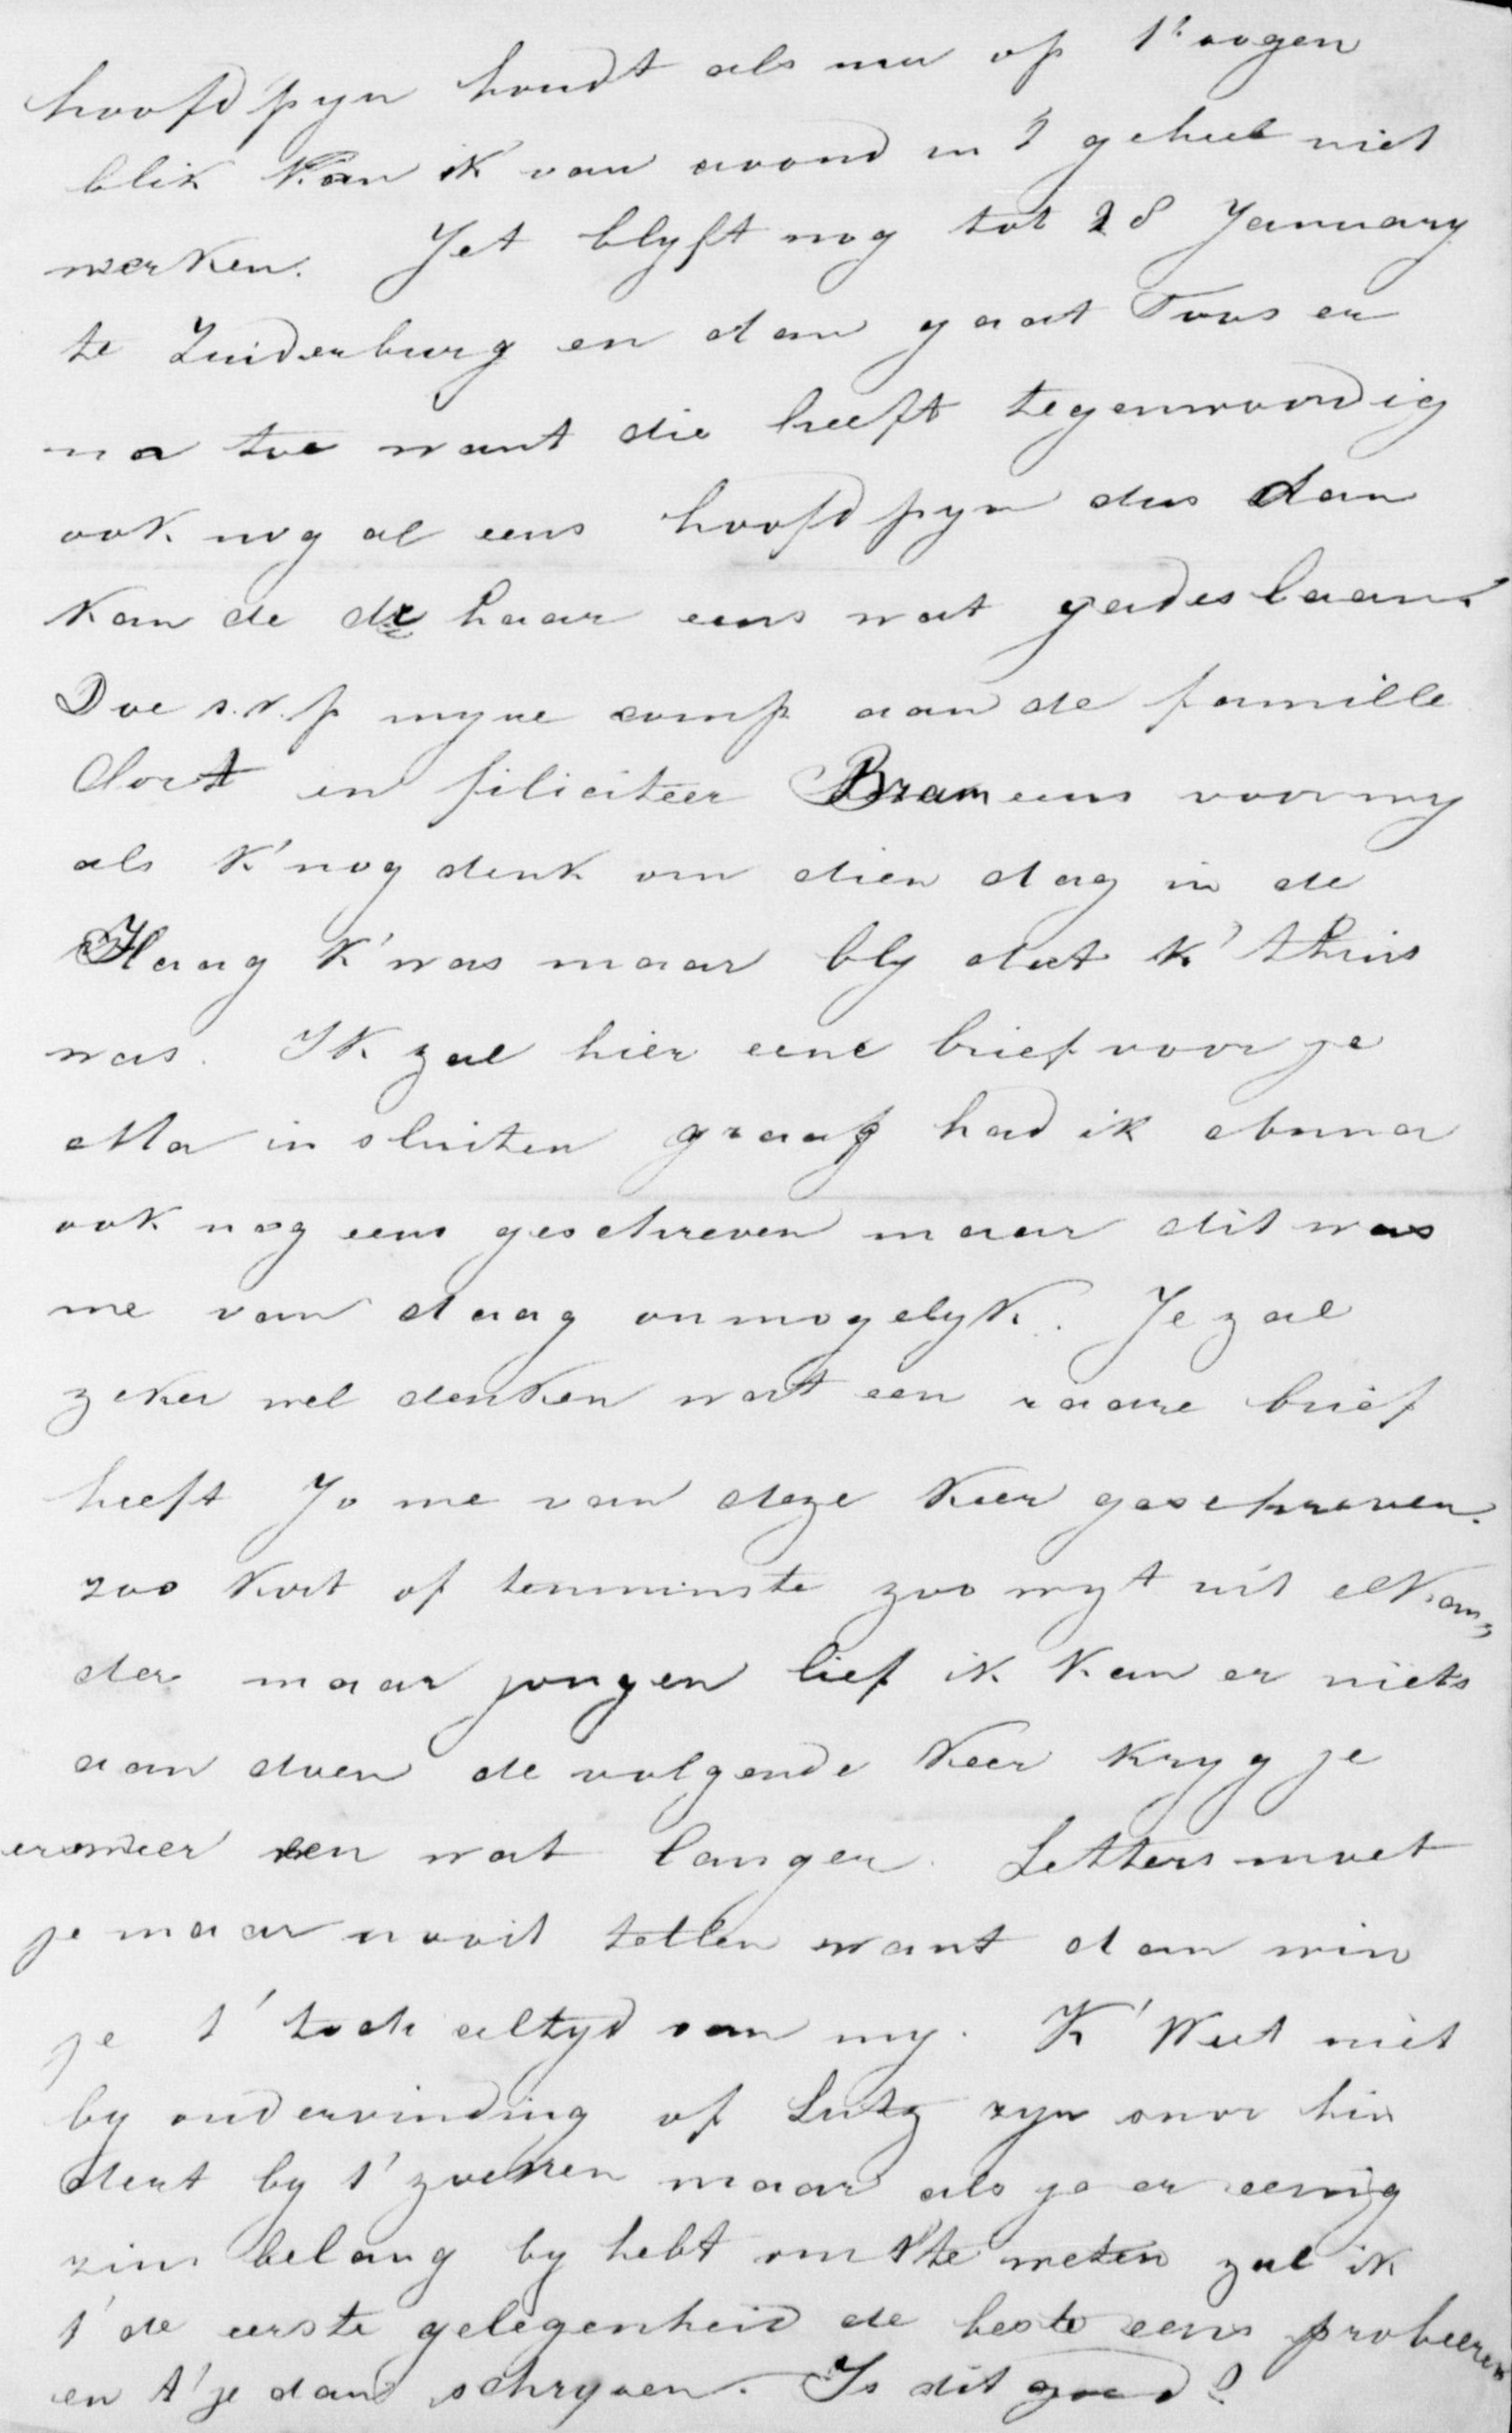 hoofdpyn houdt als nu op 't oogen
blik kan ik van avond in 't geheel niet
werken. Jet blyft nog tot 28 January
te Zuiderburg en dan gaat Toos er
na toe want die heeft tegenwoordig
ook nog al eens hoofdpyn dus dan
kan de dr haar eens wat gadeslaan.
Doe s.v.p myne comp aan de famille
Clort en filiciteer Bram eens voor my
als k' nog denk om dien dag in de
Haag k' was maar bly dat k' thuis
was. Ik zal hier eene brief voor je
Ma in sluiten graag had ik Anna
ook nog eens geschreven maar dit was
me van daag onmogelyk. Je zal
zeker wel denken wat een raare brief
heeft Jo me van deze keer geschreven.
zoo kort of tenminste zoo wyt uit elkan,
der maar jongen lief ik kan er niets
aan doen de volgende keer kryg je
er weer een wat langer. Letters moet
je maar nooit tellen want dan win
je t' toch altyd van my. K' Weet niet
by ondervinding of Lutz zyn snor hin
dert by t' zoenen maar als je er eenig
zins belang by hebt om t' te weten zal ik
t' de eerste gelegenheid de beste eens probeeren
en t' je dan schryven. Is dit goed?